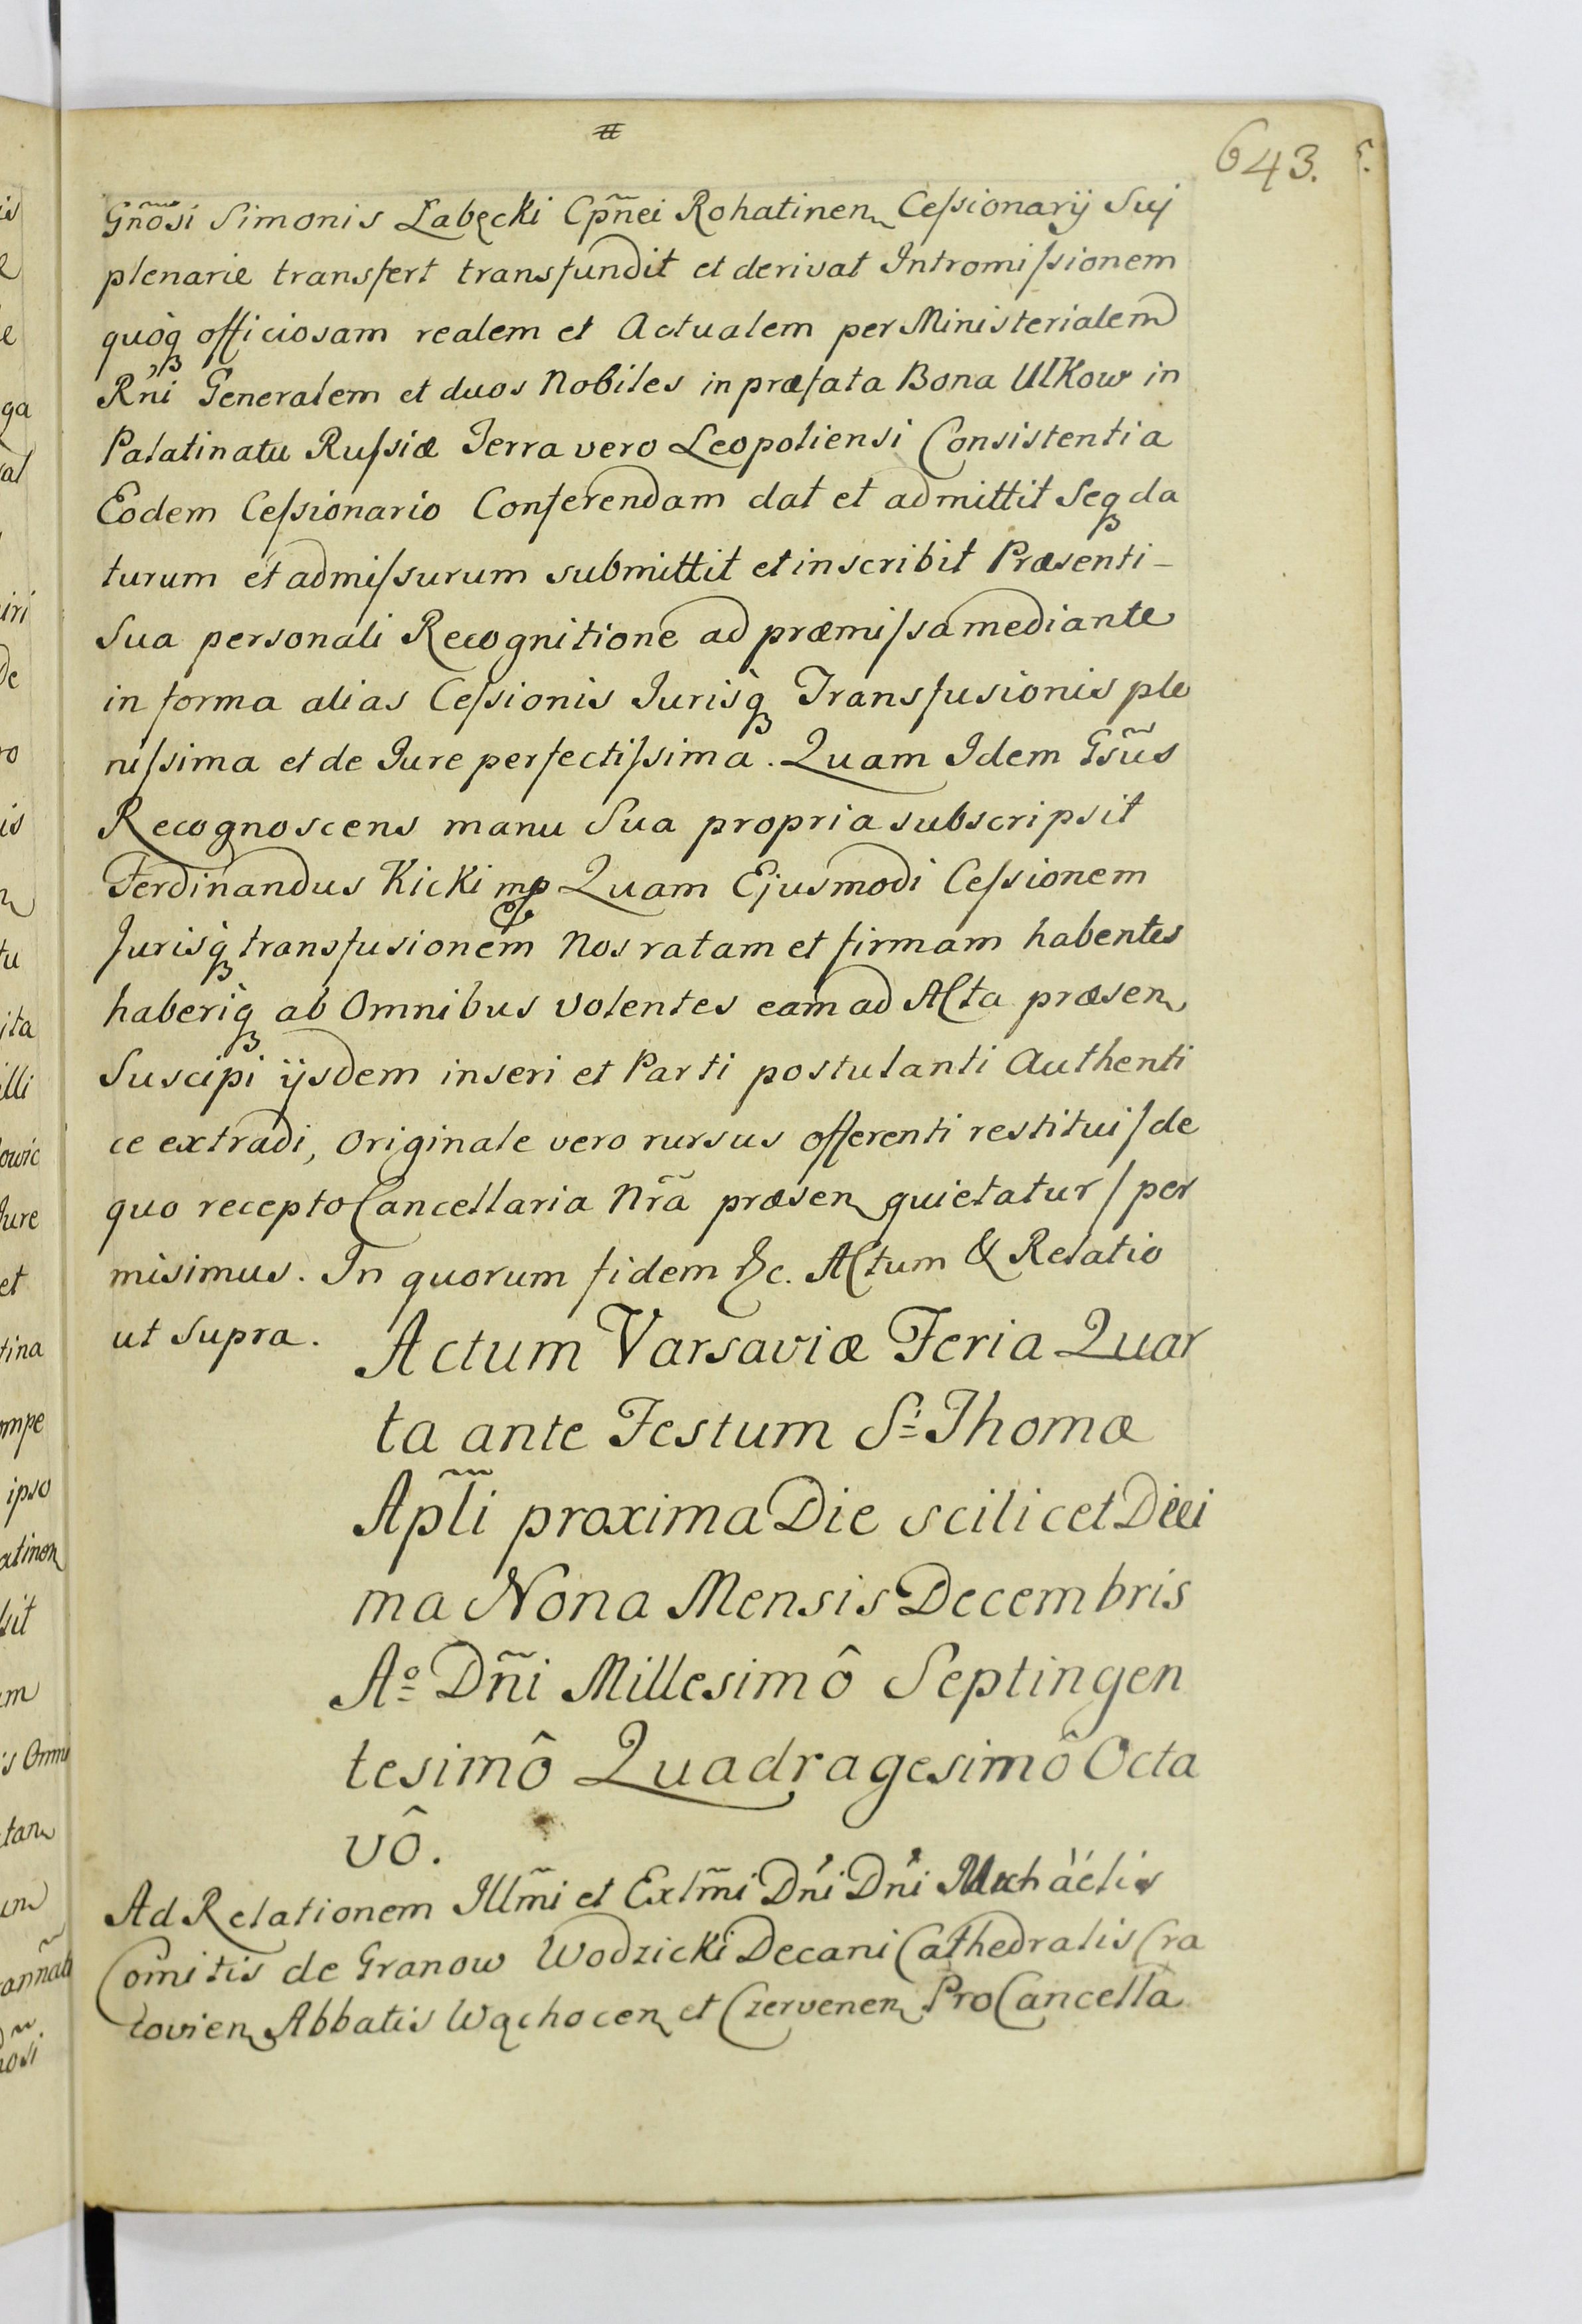 643.
Gñosi Simonis Łabęcki Cpñei Rohatinen Ceſsionarij Suj
plenarie transfert transfundit et derivat Intromiſsionem
quoq officiosam realem et Actualem per Ministerialem
Rñi Generalem et duos Nobiles in præfata Bona Ulkow in
Palatinatu Ruſsiæ Terra vero Leopoliensi Consistentia
Eodem Ceſsionario Conferendam dat et admittit Seq da
turum et admiſsurum submittit et inscribit Præsenti -
Sua personali Recognitione ad præmiſsa mediante
in forma alias Ceſsionis Jurisq Transfusionis ple
niſsima et de Jure perfectiſsima. Quam Idem Gsũs
Recognoscens manu Sua propria subscripsit
Ferdinandus Kicki mp Quam Ejusmodi Ceſsionem
Jurisq transfusionem Nos ratam et firmam habentes
haberiq ab Omnibus volentes eam ad Acta præsen
Suscipi ijsdem inseri et Parti postulanti Authenti
ce extradi, Originale vero rursus offerenti restitui / de
quo recepto Cancellaria Nrã præsen quietatur / per
misimus. In quorum fidem &c. Actum & Relatio
ut Supra.
Actum Varsaviæ Feria Quar
ta ante Festum S: Thomæ
Apl̃i proxima Die scilicet Deci
ma Nona Mensis Decembris
Aº Dñi Millesimô Septingen
tesimô Quadragesimô Octa
vô.
Ad Relationem Illm̃i et Exlm̃i Dñi Dñi Michaëlis
Comitis de Granow Wodzicki Decani Cathedralis Cra
covien Abbatis Wąchocen et Czervenen ProCancella